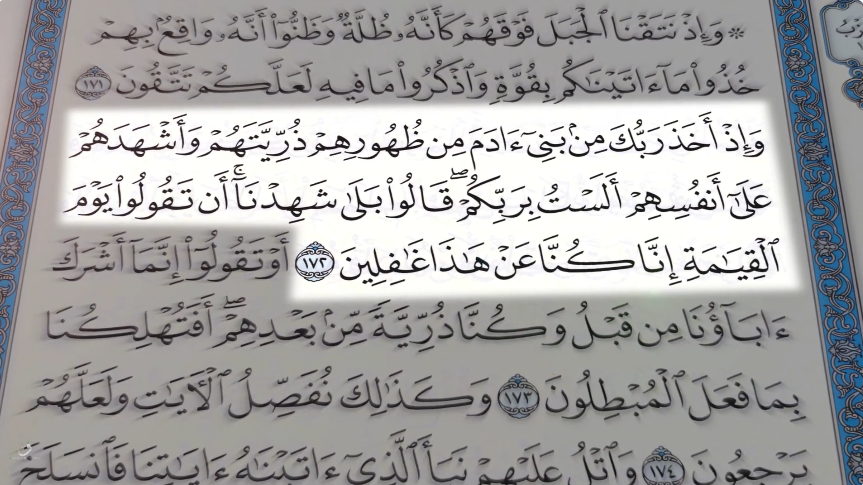 * وَإِذْ نَتَقْنَا ٱلْجَبَلَ فَوْقَهُمْ كَأَنَّهُۥ ظُلَّةٌ وَظَنُّوٓا۟ أَنَّهُۥ وَاقِعٌۢ بِهِمْ
خُذُوا۟ مَآ ءَاتَيْنَٰكُم بِقُوَّةٍ وَٱذْكُرُوا۟ مَا فِيهِ لَعَلَّكُمْ تَتَّقُونَ ١٧١
وَإِذْ أَخَذَ رَبُّكَ مِنۢ بَنِىٓ ءَادَمَ مِن ظُهُورِهِمْ ذُرِّيَّتَهُمْ وَأَشْهَدَهُمْ
عَلَىٰٓ أَنفُسِهِمْ أَلَسْتُ بِرَبِّكُمْ ۖ قَالُوا۟ بَلَىٰ شَهِدْنَآ ۚ أَن تَقُولُوا۟ يَوْمَ
ٱلْقِيَٰمَةِ إِنَّا كُنَّا عَنْ هَٰذَا غَٰفِلِينَ ١٧٢ أَوْ تَقُولُوٓا۟ إِنَّمَآ أَشْرَكَ
ءَابَآؤُنَا مِن قَبْلُ وَكُنَّا ذُرِّيَّةً مِّنۢ بَعْدِهِمْ ۖ أَفَتُهْلِكُنَا
بِمَا فَعَلَ ٱلْمُبْطِلُونَ ١٧٣ وَكَذَٰلِكَ نُفَصِّلُ ٱلْءَايَٰتِ وَلَعَلَّهُمْ
يَرْجِعُونَ ١٧٤ وَٱتْلُ عَلَيْهِمْ نَبَأَ ٱلَّذِىٓ ءَاتَيْنَٰهُ ءَايَٰتِنَا فَٱنسَلَخَ